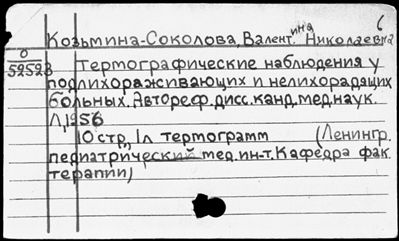 6
Козьмина-Соколова, Валентина Николаевна
0
52528
Термографические наблюдения у
подлихораживающих и нелихорадящих
больных. Автореф. дисс. канд. мед. наук.
Л, 1956
10 стр., 1 л термограмм (Ленингр.
педиатрический мед. ин-т. Кафедра фак.
терапии)